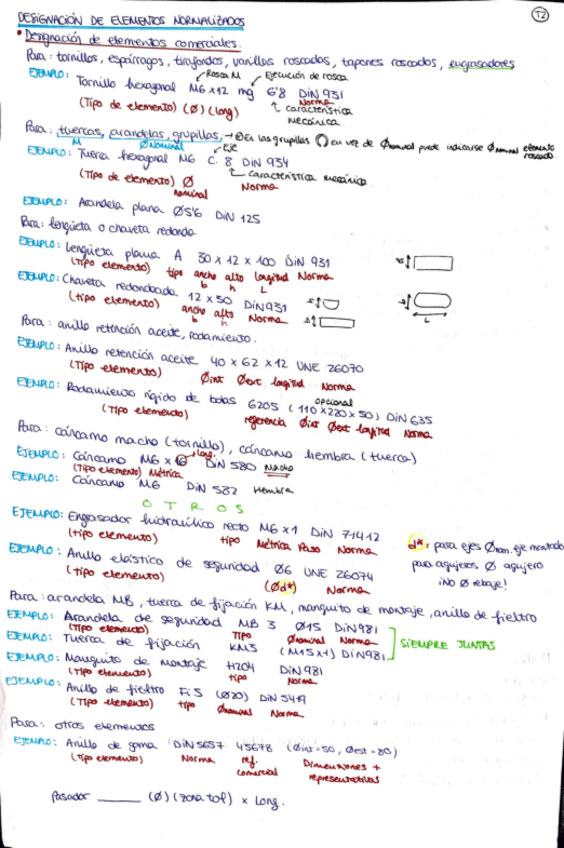 T2
DESIGNACIÓN DE ELEMENTOS NORMALIZADOS
• Designación de elementos comerciales.
Para: tornillos, espárragos, tirafondos, varillas roscadas, tapones roscados, engrasadores
Rosca M Ejecución de rosca
EJEMPLO: Tornillo hexagonal M6x12 mg 6'8 DIN 931
(Tipo de elemento) (Ø) (long) Norma
característica mecánica
Para: tuercas, arandelas, grupillas, → En las grupillas en vez de Ønominal puede indicarse Ønominal elemento roscado
M Ønominal Eje
EJEMPLO: Tuerca hexagonal M6 C. 8 DIN 934
(Tipo de elemento) Ø nominal característica mecánica Norma
EJEMPLO: Arandela plana Ø5'6 DIN 125
Para: lengüeta o chaveta redonda
EJEMPLO: Lengüeta plana A 30 x 12 x 100 DIN 931
(tipo elemento) tipo ancho alto longitud Norma
b h L
EJEMPLO: Chaveta redondada 12 x 50 DIN 931
(tipo elemento) ancho alto Norma
b h
L
Para: anillo retención aceite, rodamiento.
EJEMPLO: Anillo retención aceite 40 x 62 x 12 UNE 26070
(Tipo elemento) Øint Øext longitud Norma
opcional
EJEMPLO: Rodamiento rígido de bolas 6205 (110x220x50) DIN 635
(Tipo elemento) referencia Øint Øext longitud Norma
Para: cáncamo macho (tornillo), cáncamo hembra (tuerca)
long.
EJEMPLO: Cáncamo M6 x 16 DIN 580 Macho
(Tipo elemento) Métrica
EJEMPLO: Cáncamo M6 DIN 582 Hembra
OTROS
EJEMPLO: Engrasador hidraúlico recto M6x1 DIN 71412
(tipo elemento) tipo Métrica Paso Norma
EJEMPLO: Anillo elástico de seguridad Ø6 UNE 26074
(tipo elemento) (Ød*) Norma
d*: para ejes Ønom. eje montado
para agujeros Ø agujero
¡NO Ø rebaje!
Para: arandela MB, tuerca de fijación KM, manguito de montaje, anillo de fieltro
EJEMPLO: Arandela de seguridad MB 3 Ø15 DIN 981
(Tipo elemento) Tipo Ønominal Norma
EJEMPLO: Tuerca de fijación KM3 (M15x1) DIN 981
SIEMPRE JUNTAS
EJEMPLO: Manguito de montaje H204 DIN 981
(Tipo elemento) tipo Norma
EJEMPLO: Anillo de fieltro FiS (Ø20) DIN 5419
(Tipo elemento) tipo Ønominal Norma
Para: otros elementos
EJEMPLO: Anillo de goma DIN 5657 45678 (Øint=50, Øest=80)
(tipo elemento) Norma ref. comercial Dimensiones + representativas
Pasador ____ (Ø) (zona tol) x Long.